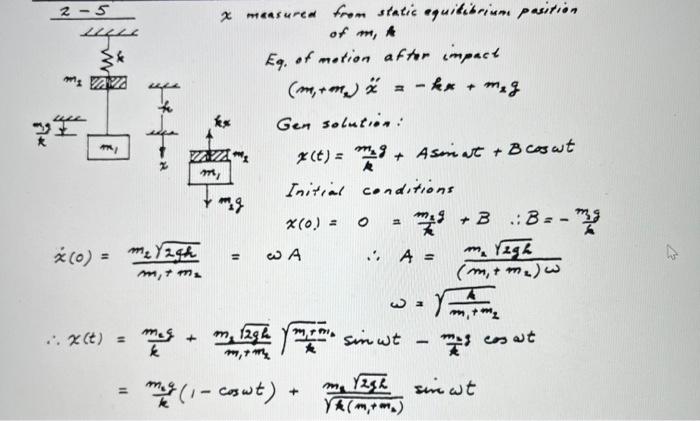 2-5
x measured from static equilibrium position
of m₁ k
Eq. of motion after impact
(m₁+m₂) ẍ = -kx + m₂g
Gen solution:
x(t) = m₂g/k + A sin ωt + B cos ωt
Initial conditions
x(0) = 0 = m₂g/k + B ∴ B = - m₂g/k
ẋ(0) = m₂√2gh/m₁+m₂ = ωA ∴ A = m₂√2gh/(m₁+m₂)ω
ω = √k/m₁+m₂
∴ x(t) = m₂g/k + m₂√2gh/m₁+m₂ √m₁+m₂/k sin ωt - m₂g/k cos ωt
= m₂g/k (1 - cos ωt) + m₂√2gh/√k(m₁+m₂) sin ωt
k
m₂
h
m₂g/k
m₁
x
kx
m₂
m₁
m₂g